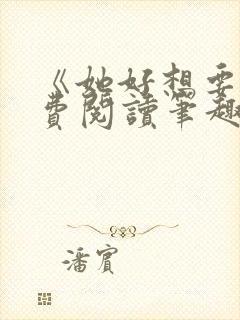 《她好想要
費閱讀筆趣
潘賓